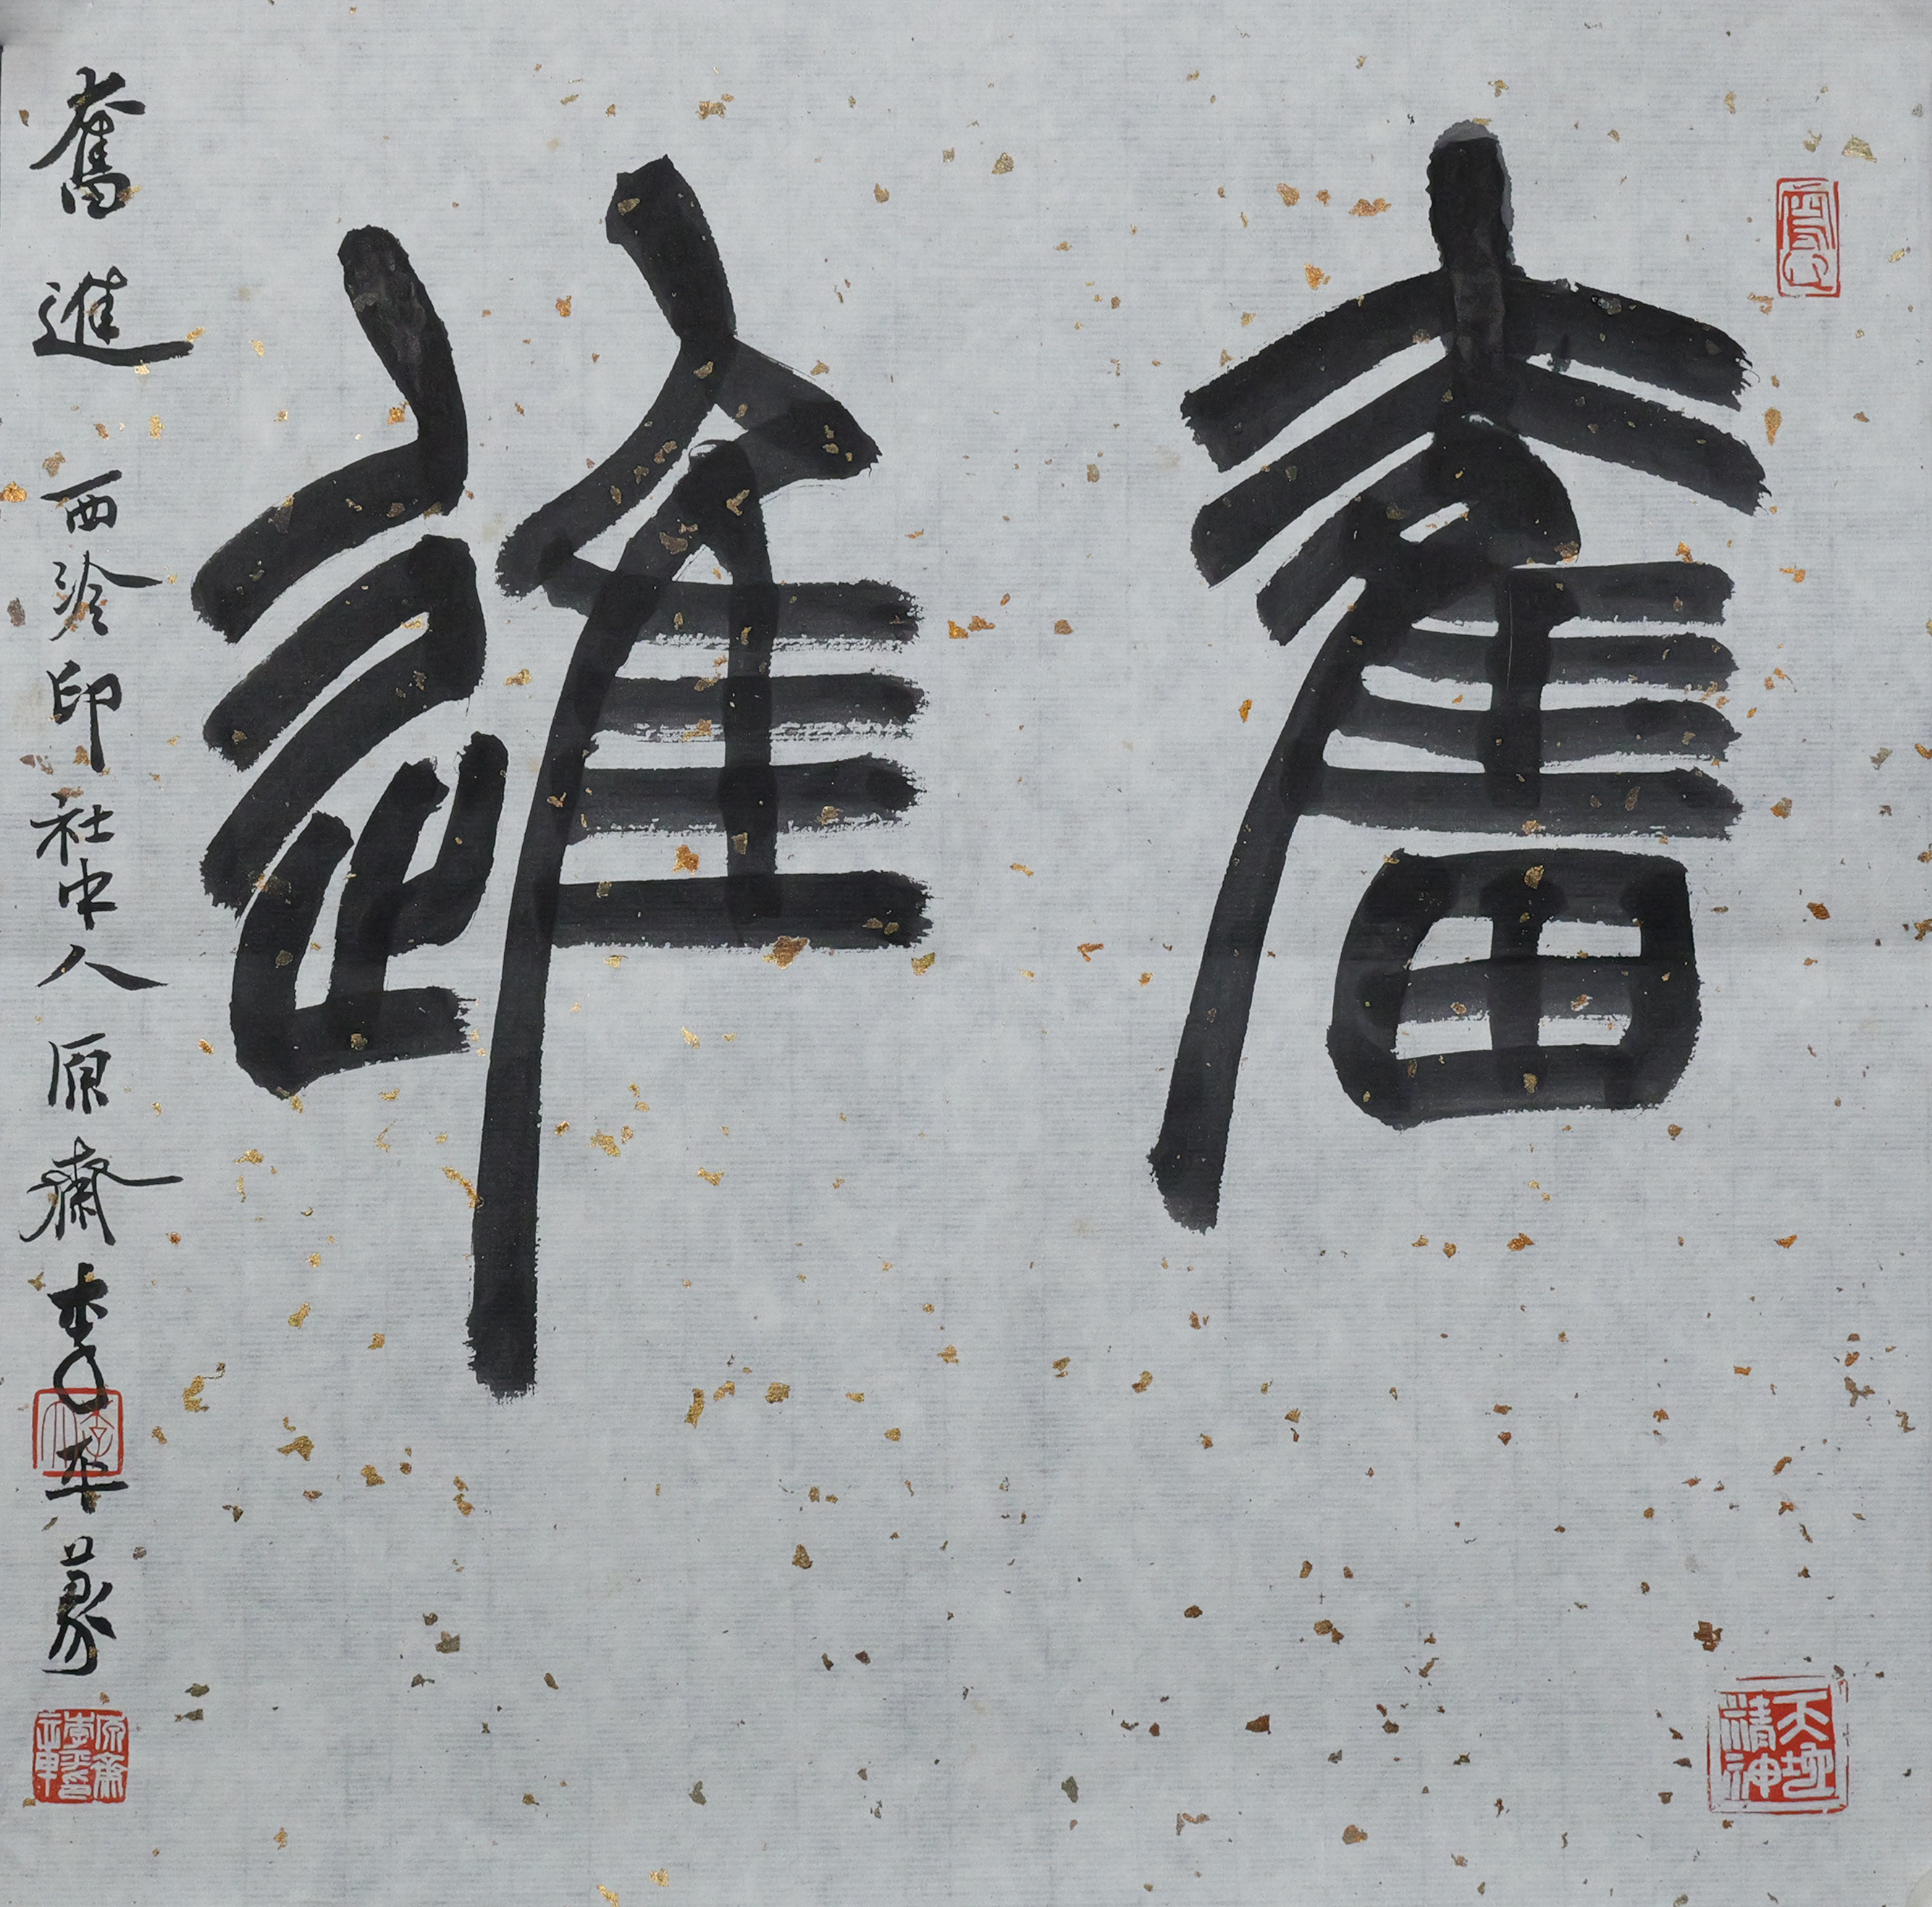 奮進
奮進 西泠印社中人原齋李 篆
天地精神